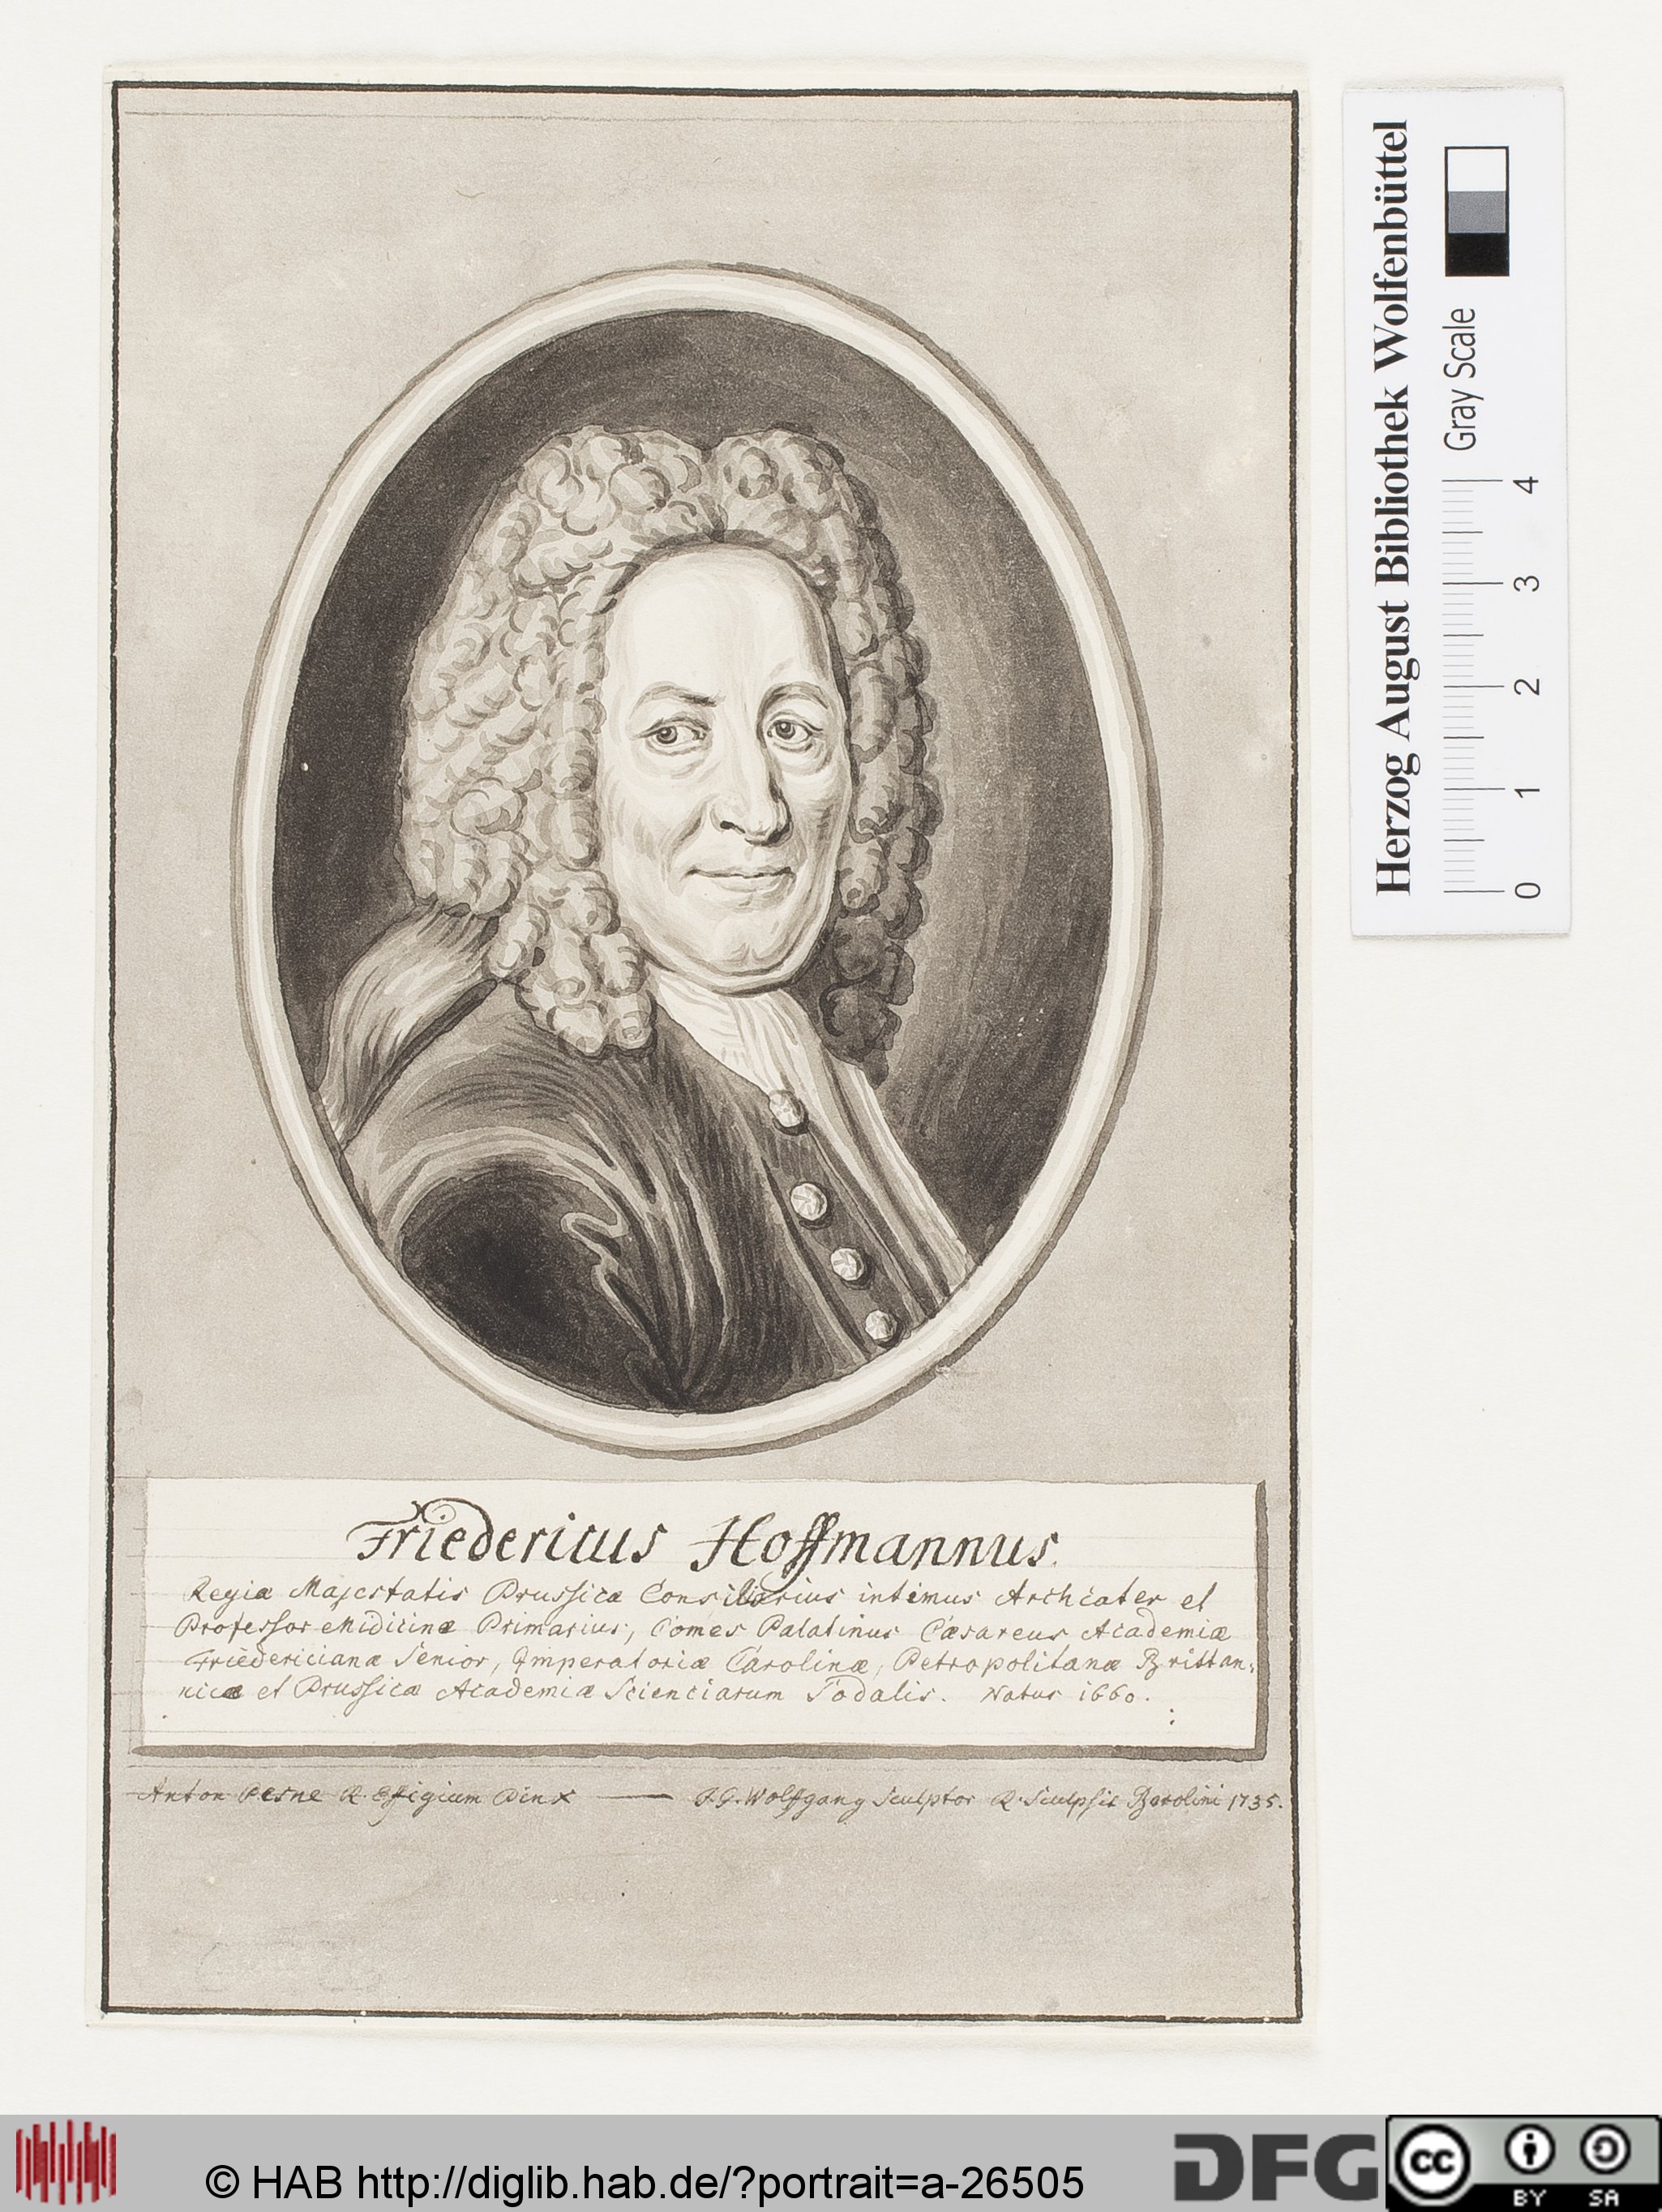 Friedericus Hoffmannus.
Regiæ Majestatis Prussicæ Consiliarius intimus Archiater et
Professor Midicinæ Primarius, Comes Palatinus Cæsareus Academiæ
Friedericianæ Senior, Imperatoriæ Carolinæ, Petropolitanæ Brittan,,
nicæ et Prussicæ Academiæ Scienciarum Sodalis. Natus 1660.
Anton Pesne R. Effigium Pinx — J.G. Wolffgang Sculptor R. Sculpsit Berolini 1735.
Herzog August Bibliothek Wolfenbüttel
0 1 2 3 4 Gray Scale
© HAB http://diglib.hab.de/?portrait=a-26505
DFG
cc
BY SA